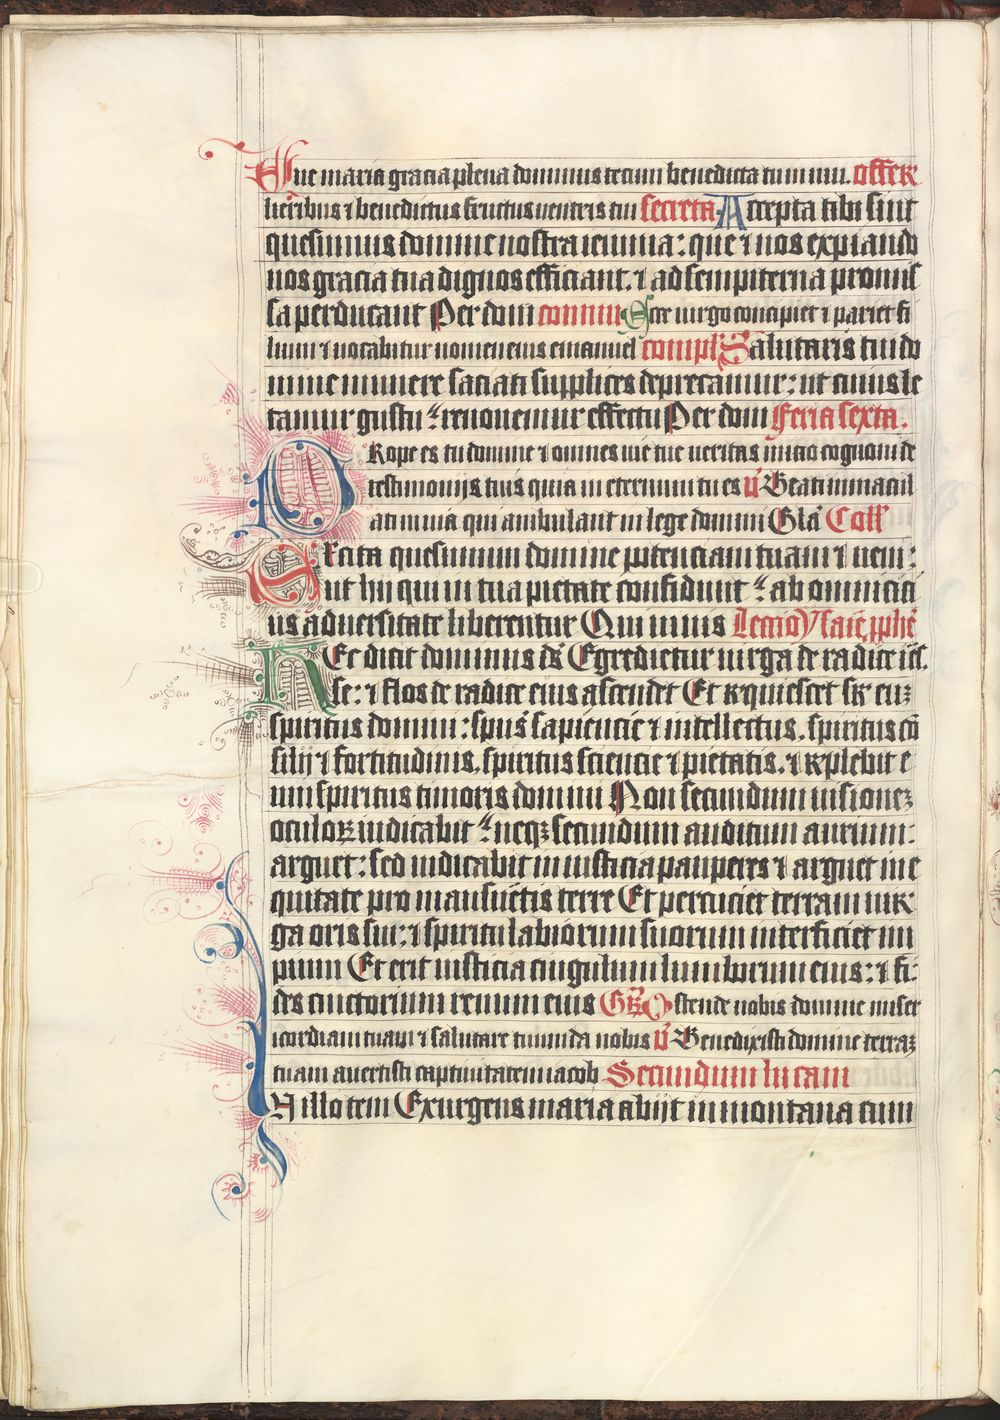 Aue maria gracia plena dominus tecum benedicta tu in mu. offer
lieribus ⁊ benedictus fructus uentris tui secreta Accepta tibi sint
quesumus domine nostra ieiunia: que ⁊ nos expiando
nos gracia tua dignos efficiant. ⁊ ad sempiterna promis
sa perducant Per dom commu Ecce uirgo concipiet ⁊ pariet fi
lium ⁊ uocabitur nomen eius emanuel compl Salutaris tui do
mine munere saciati supplices deprecamur: ut cuius le
tamur gustu renouemur effectu Per dom Feria sexta.
PRope es tu domine ⁊ omnes uie tue ueritas inicio cognoui de
testimonijs tuis quia in eternum tu es ṽ Beati immacul
ati in uia qui ambulant in lege domini Gła Coll
EXcita quesumus domine potenciam tuam ⁊ ueni:
ut hij qui in tua pietate confidunt ab omni citi
us aduersitate liberentur Qui uiuis Lectio ysaie pphē
HEc dicit dominus ds̄ Egredietur uirga de radice ies
se: ⁊ flos de radice eius ascendet Et requiescet sr̄ euȝ
spiritus domini: spūs sapiencie ⁊ intellectus. spiritus cō
silij ⁊ fortitudinis. spiritus sciencie ⁊ pietatis. ⁊ replebit e
um spiritus timoris domini Non secundum uisioneȝ
oculoꝝ iudicabit neqȝ secundum auditum aurium:
arguet: sed iudicabit in iusticia pauperes ⁊ arguet in e
quitate pro mansuetis terre Et percuciet terram uir
ga oris sui: ⁊ spiritu labiorum suorum interficiet im
pium Et erit iusticia cingulum lumborum eius: ⁊ fi:
des cinctorium renum eius Gr̄ Ostende nobis domine miser
icordiam tuam ⁊ salutare tuum da nobis ṽ Benedixisti domine terraȝ
tuam auertisti captiuitatem iacob Secundum lucam
IN illo tem Exurgens maria abijt in montana cum